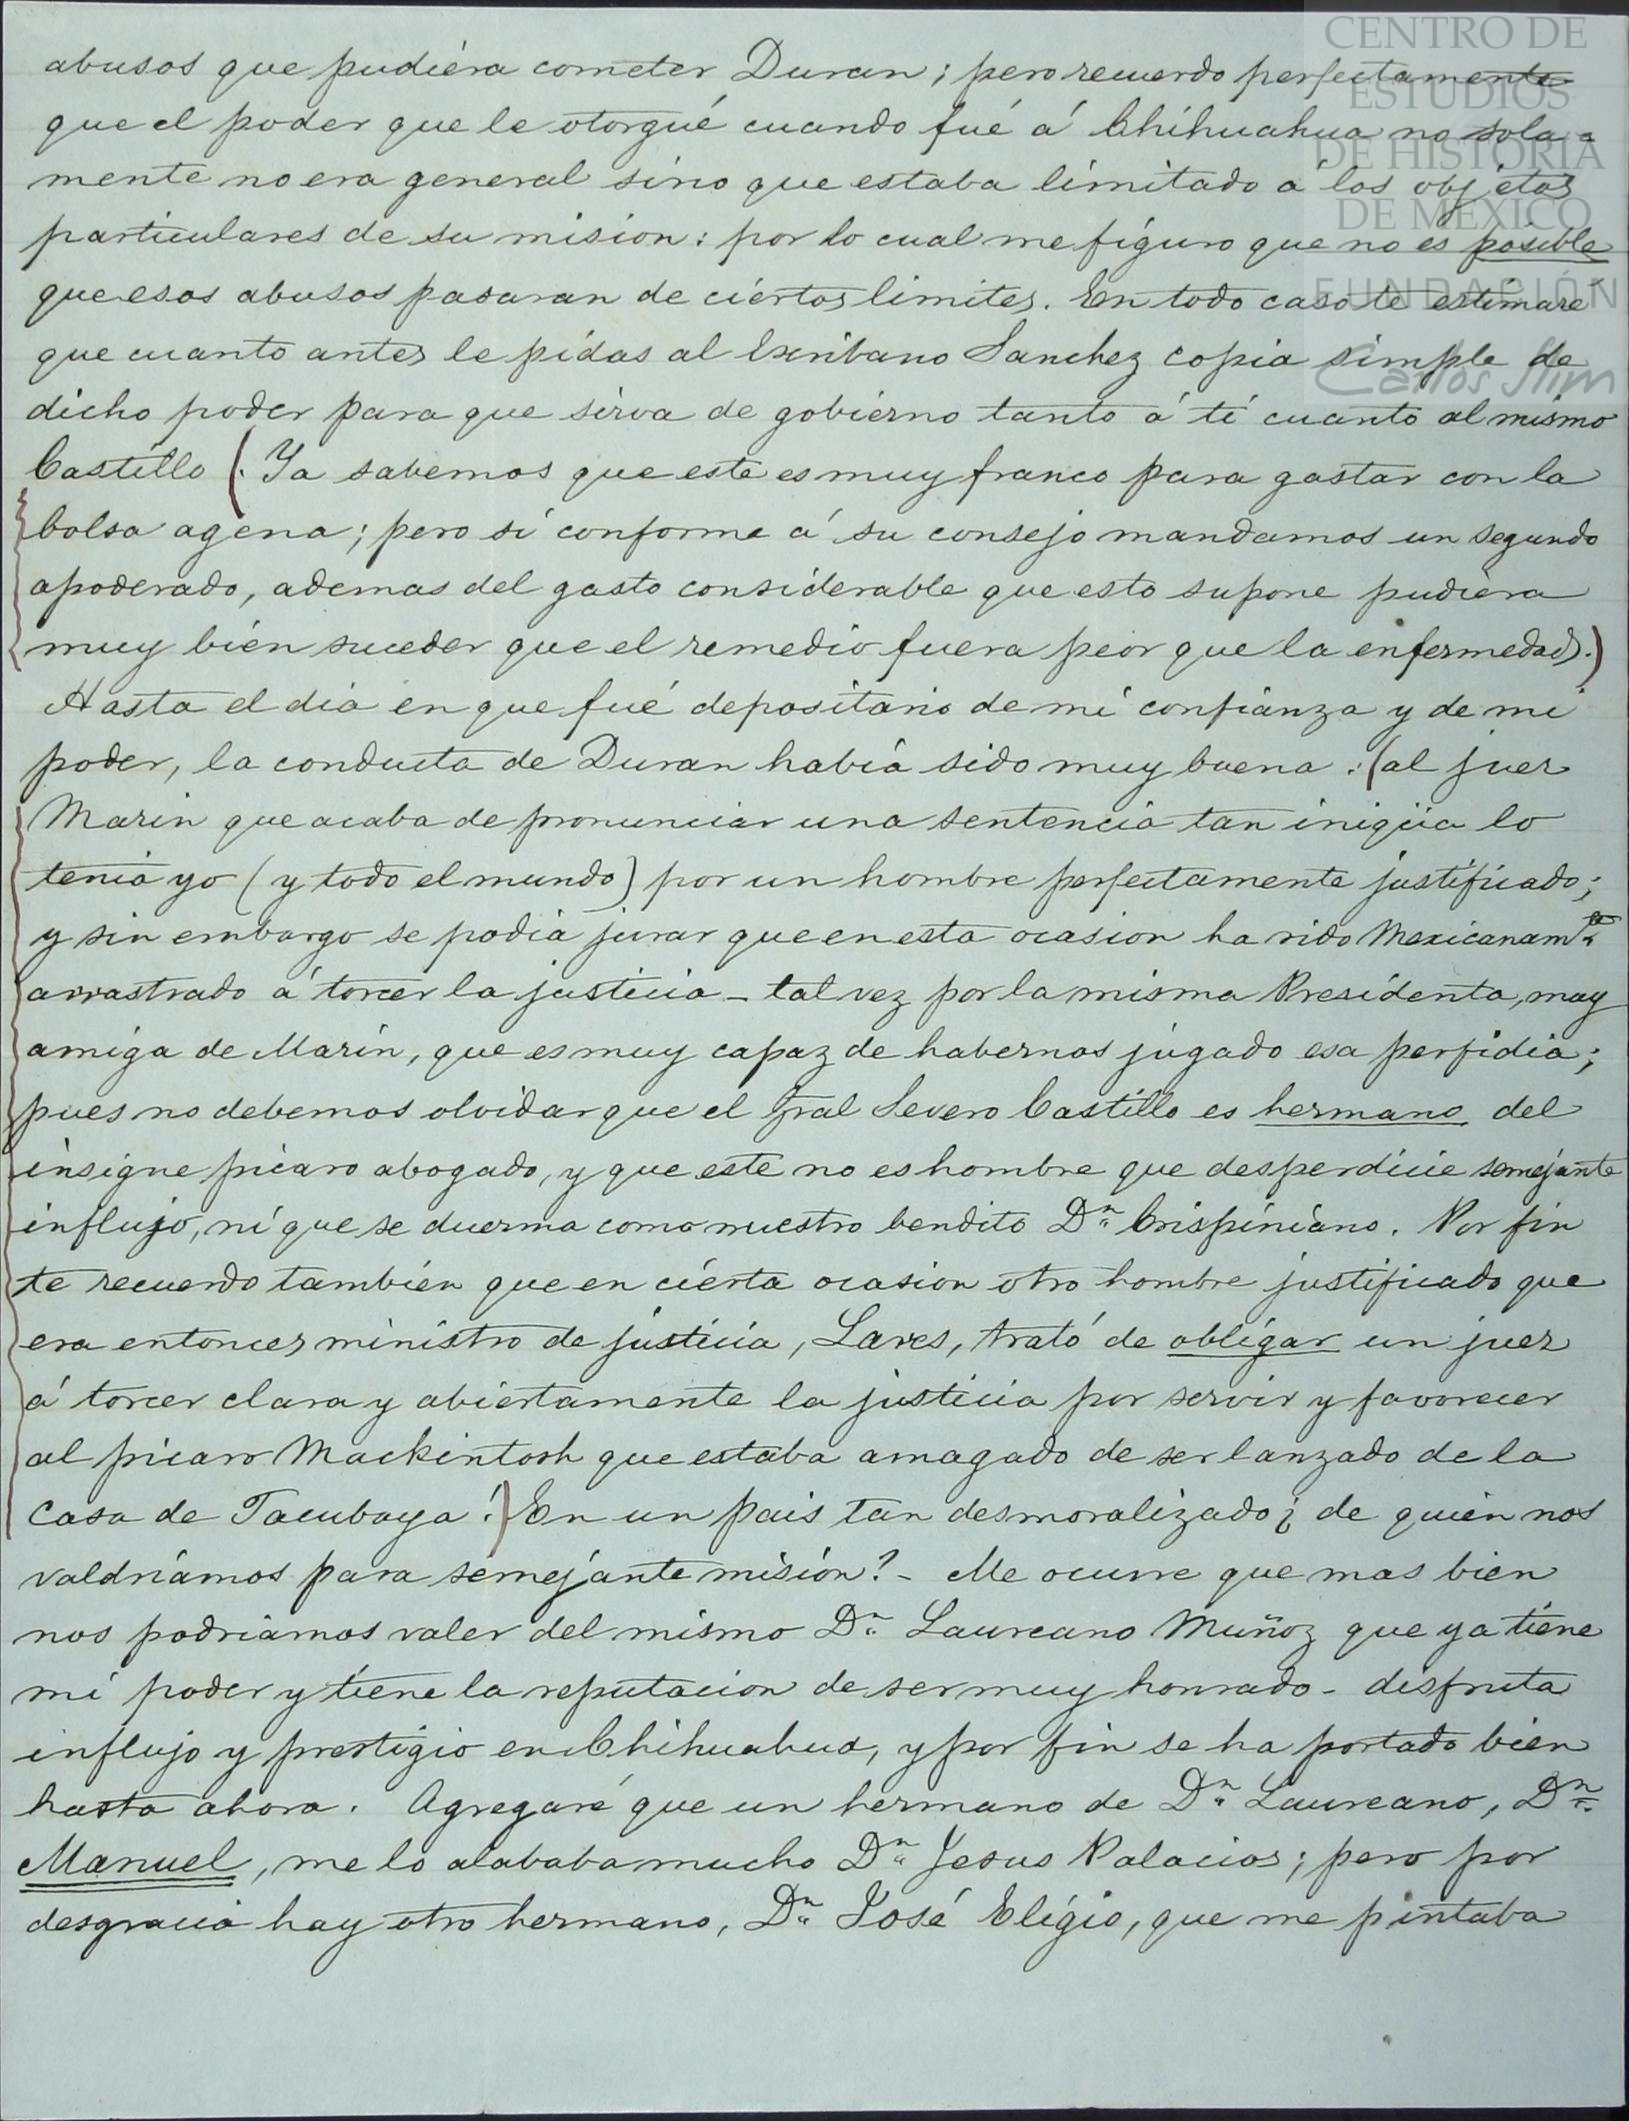 CENTRO DE
ESTUDIOS
DE HISTORIA
DE MÉXICO
FUNDACIÓN
Carlos Slim
abusos que pudiéra cometer Duran; pero recuerdo perfectamente
que el poder que le otorgué cuando fué á Chihuahua no sola=
mente no era general sino que estaba limitado á los objetos
particulares de su mision: por lo cual me figuro que no es posible
que esos abusos pasaran de ciertos limites. En todo caso te estimaré
que cuanto antes le pidas al Escribano Sanchez copia simple de
dicho poder para que sirva de gobierno tanto á tí cuanto al mismo
Castillo (. Ya sabemos que este es muy franco para gastar con la
bolsa agena; pero si conforme á su consejo mandamos un segundo
apoderado, ademas del gasto considerable que esto supone pudiera
muy bien suceder que el remedio fuera peor que la enfermedad.)
Hasta el dia en que fué depositario de mi confianza y de mi
poder, la conducta de Duran habia sido muy buena: (al juez
Marin que acaba de pronunciar una sentencia tan iniqüa lo
tenia yo (y todo el mundo) por un hombre perfectamente justificado;
y sin embargo se podia jurar que en esta ocasion ha sido Mexicanamte
arrastrado á torcer la justicia - tal vez por la misma Presidenta, muy
amiga de Marin, que es muy capaz de habernos jugado esa perfidia;
pues no debemos olvidar que el Gral Severo Castillo es hermano del
insigne picaro abogado, y que este no es hombre que desperdicie semejante
influjo, ni que se duerma como nuestro bendito Dn Crispiniano. Por fin
te recuerdo tambien que en cierta ocasion otro hombre justificado que
era entonces ministro de justicia, Lares, trató de obligar un juez
á torcer clara y abiertamente la justicia por servir y favorecer
al picaro Mackintosh que estaba amagado de ser lanzado de la
Casa de Tacubaya!) En un pais tan desmoralizado ¿ de quien nos
valdriamos para semejante mision? - Me ocurre que mas bien
nos podriamos valer del mismo Dn Laureano Muñoz que ya tiene
mi poder y tiene la reputacion de ser muy honrado - disfruta
influjo y prestigio en Chihuahua, y por fin se ha portado bien
hasta ahora. Agregaré que un hermano de Dn Laureano, Dn
Manuel, me lo alababa mucho Dn Jesus Palacios; pero por
desgracia hay otro hermano, Dn José Eligio, que me pintaba